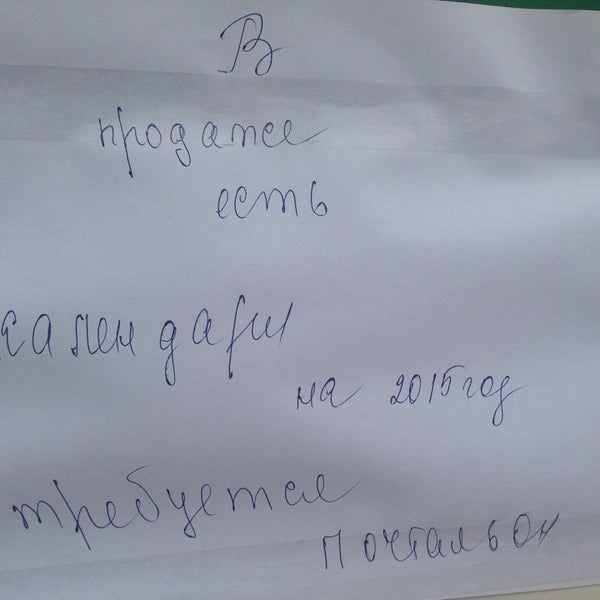 В
продаже
есть
календари
на 2015 год
требуется
почтальон